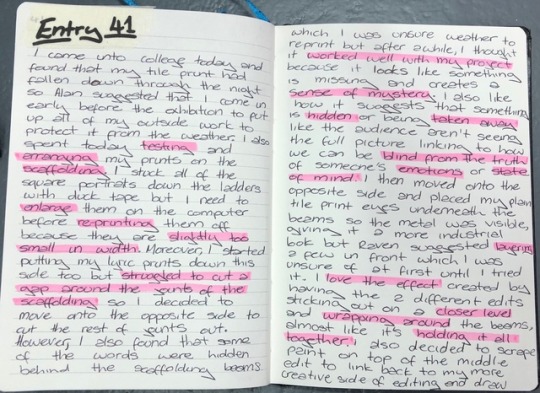 Entry 41
I came into college today and
found that my tile print had
fallen down through the night
so Alan suggested that I come in
early before the exhibition to put
up all of my outside work to
protect it from the weather. I also
spent today testing and
arranging my prints on the
scaffolding. I stuck all of the
square portraits down the ladders
with duck tape but I need to
enlarge them on the computer
before re-printing them off
because they are slightly too
small in width. Moreover, I started
putting my lyric prints down this
side too but struggled to cut a
gap around the joints of the
scaffolding so I decided to
move onto the opposite side to
cut the rest of joints out.
However, I also found that some
of the words were hidden
behind the scaffolding beams
which I was unsure weather to
reprint but after a while, I thought
it worked well with my project
because it looks like something
is missing and creates a
sense of mystery. I also like
how it suggests that something
is hidden or being taken away
like the audience aren't seeing
the full picture linking to how
we can be blind from the truth
of someone's emotions or state
of mind. I then moved onto the
opposite side and placed my plain
tile print eyes underneath the
beams so the metal was visible,
giving it a more industrial
look but Raven suggested layering
a few in front which I was
unsure of at first until I tried
it. I love the effect created by
having the 2 different edits
sticking out on a closer level
and wrapping around the beams,
almost like it's holding it all
together. I also decided to scrape
paint on top of the middle
edit to link back to my more
creative side of editing and draw